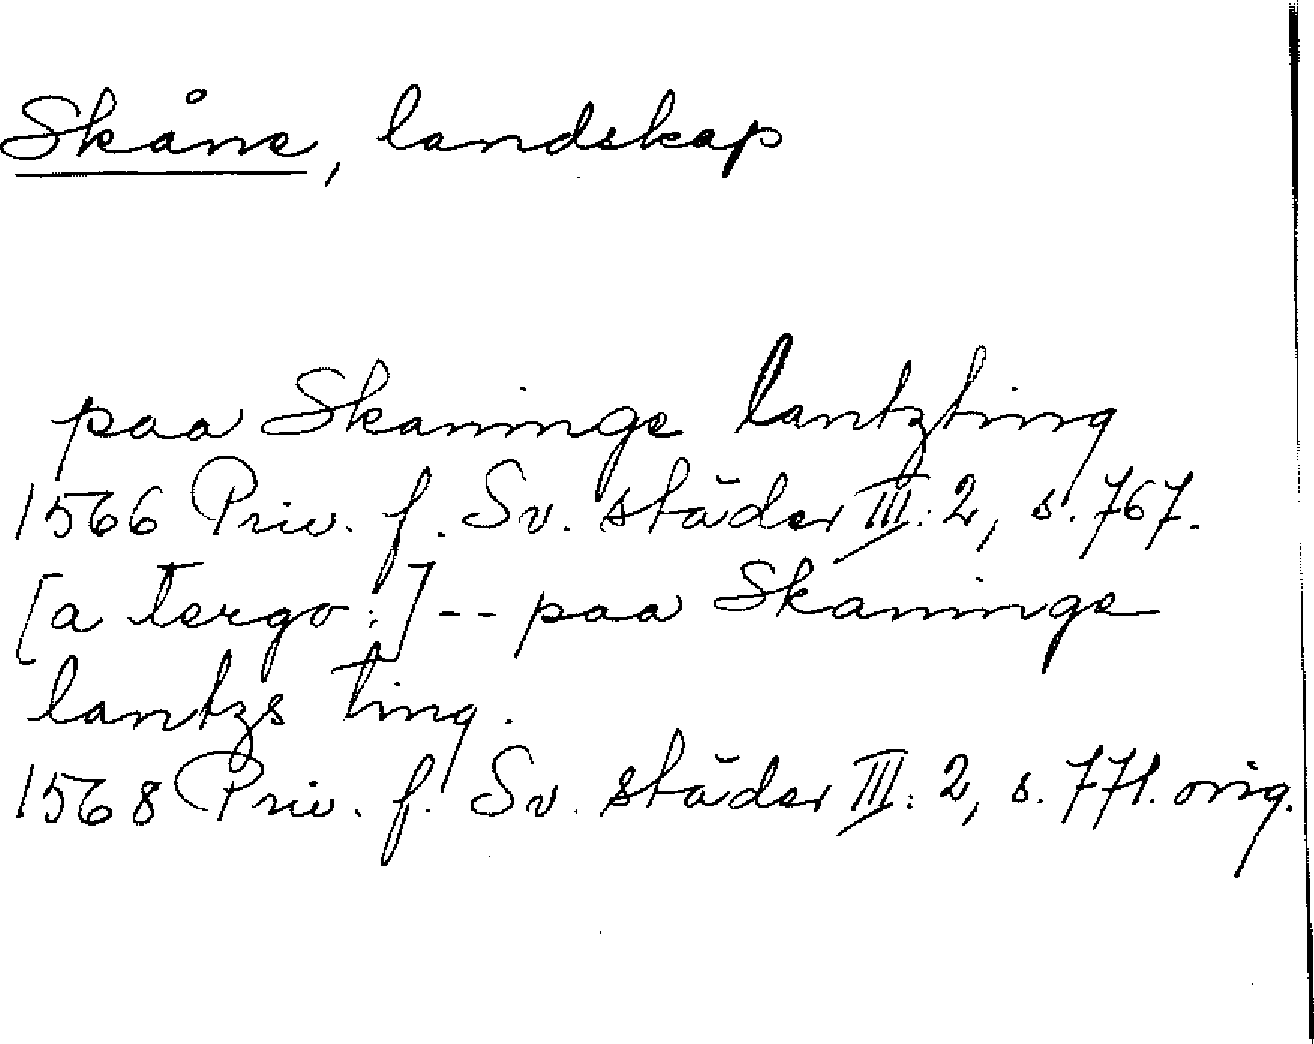 Skåne, landskap
paa Skaninge lantzting
1566 Priv. f. Sv. städer III: 2, s. 767.
[a tergo:] -- paa Skaninge
lantzs ting.
1568 Priv. f. Sv. städer III: 2, s. 771. orig.